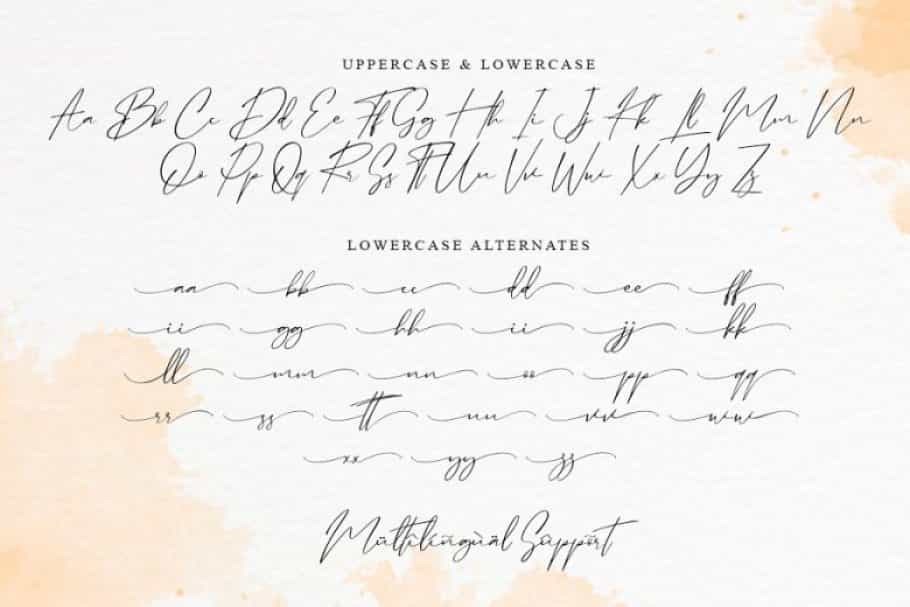 UPPERCASE & LOWERCASE
Aa Bb Cc Dd Ee Ff Gg Hh Ii Jj Kk Ll Mm Nn
Oo Pp Qq Rr Ss Tt Uu Vv Ww Xx Yy Zz
LOWERCASE ALTERNATES
aa bb cc dd ee ff
ii gg hh ii jj kk
ll mm nn oo pp qq
rr ss tt uu vv ww
xx yy zz
Mùltîlíñgùäl Sûppõrt